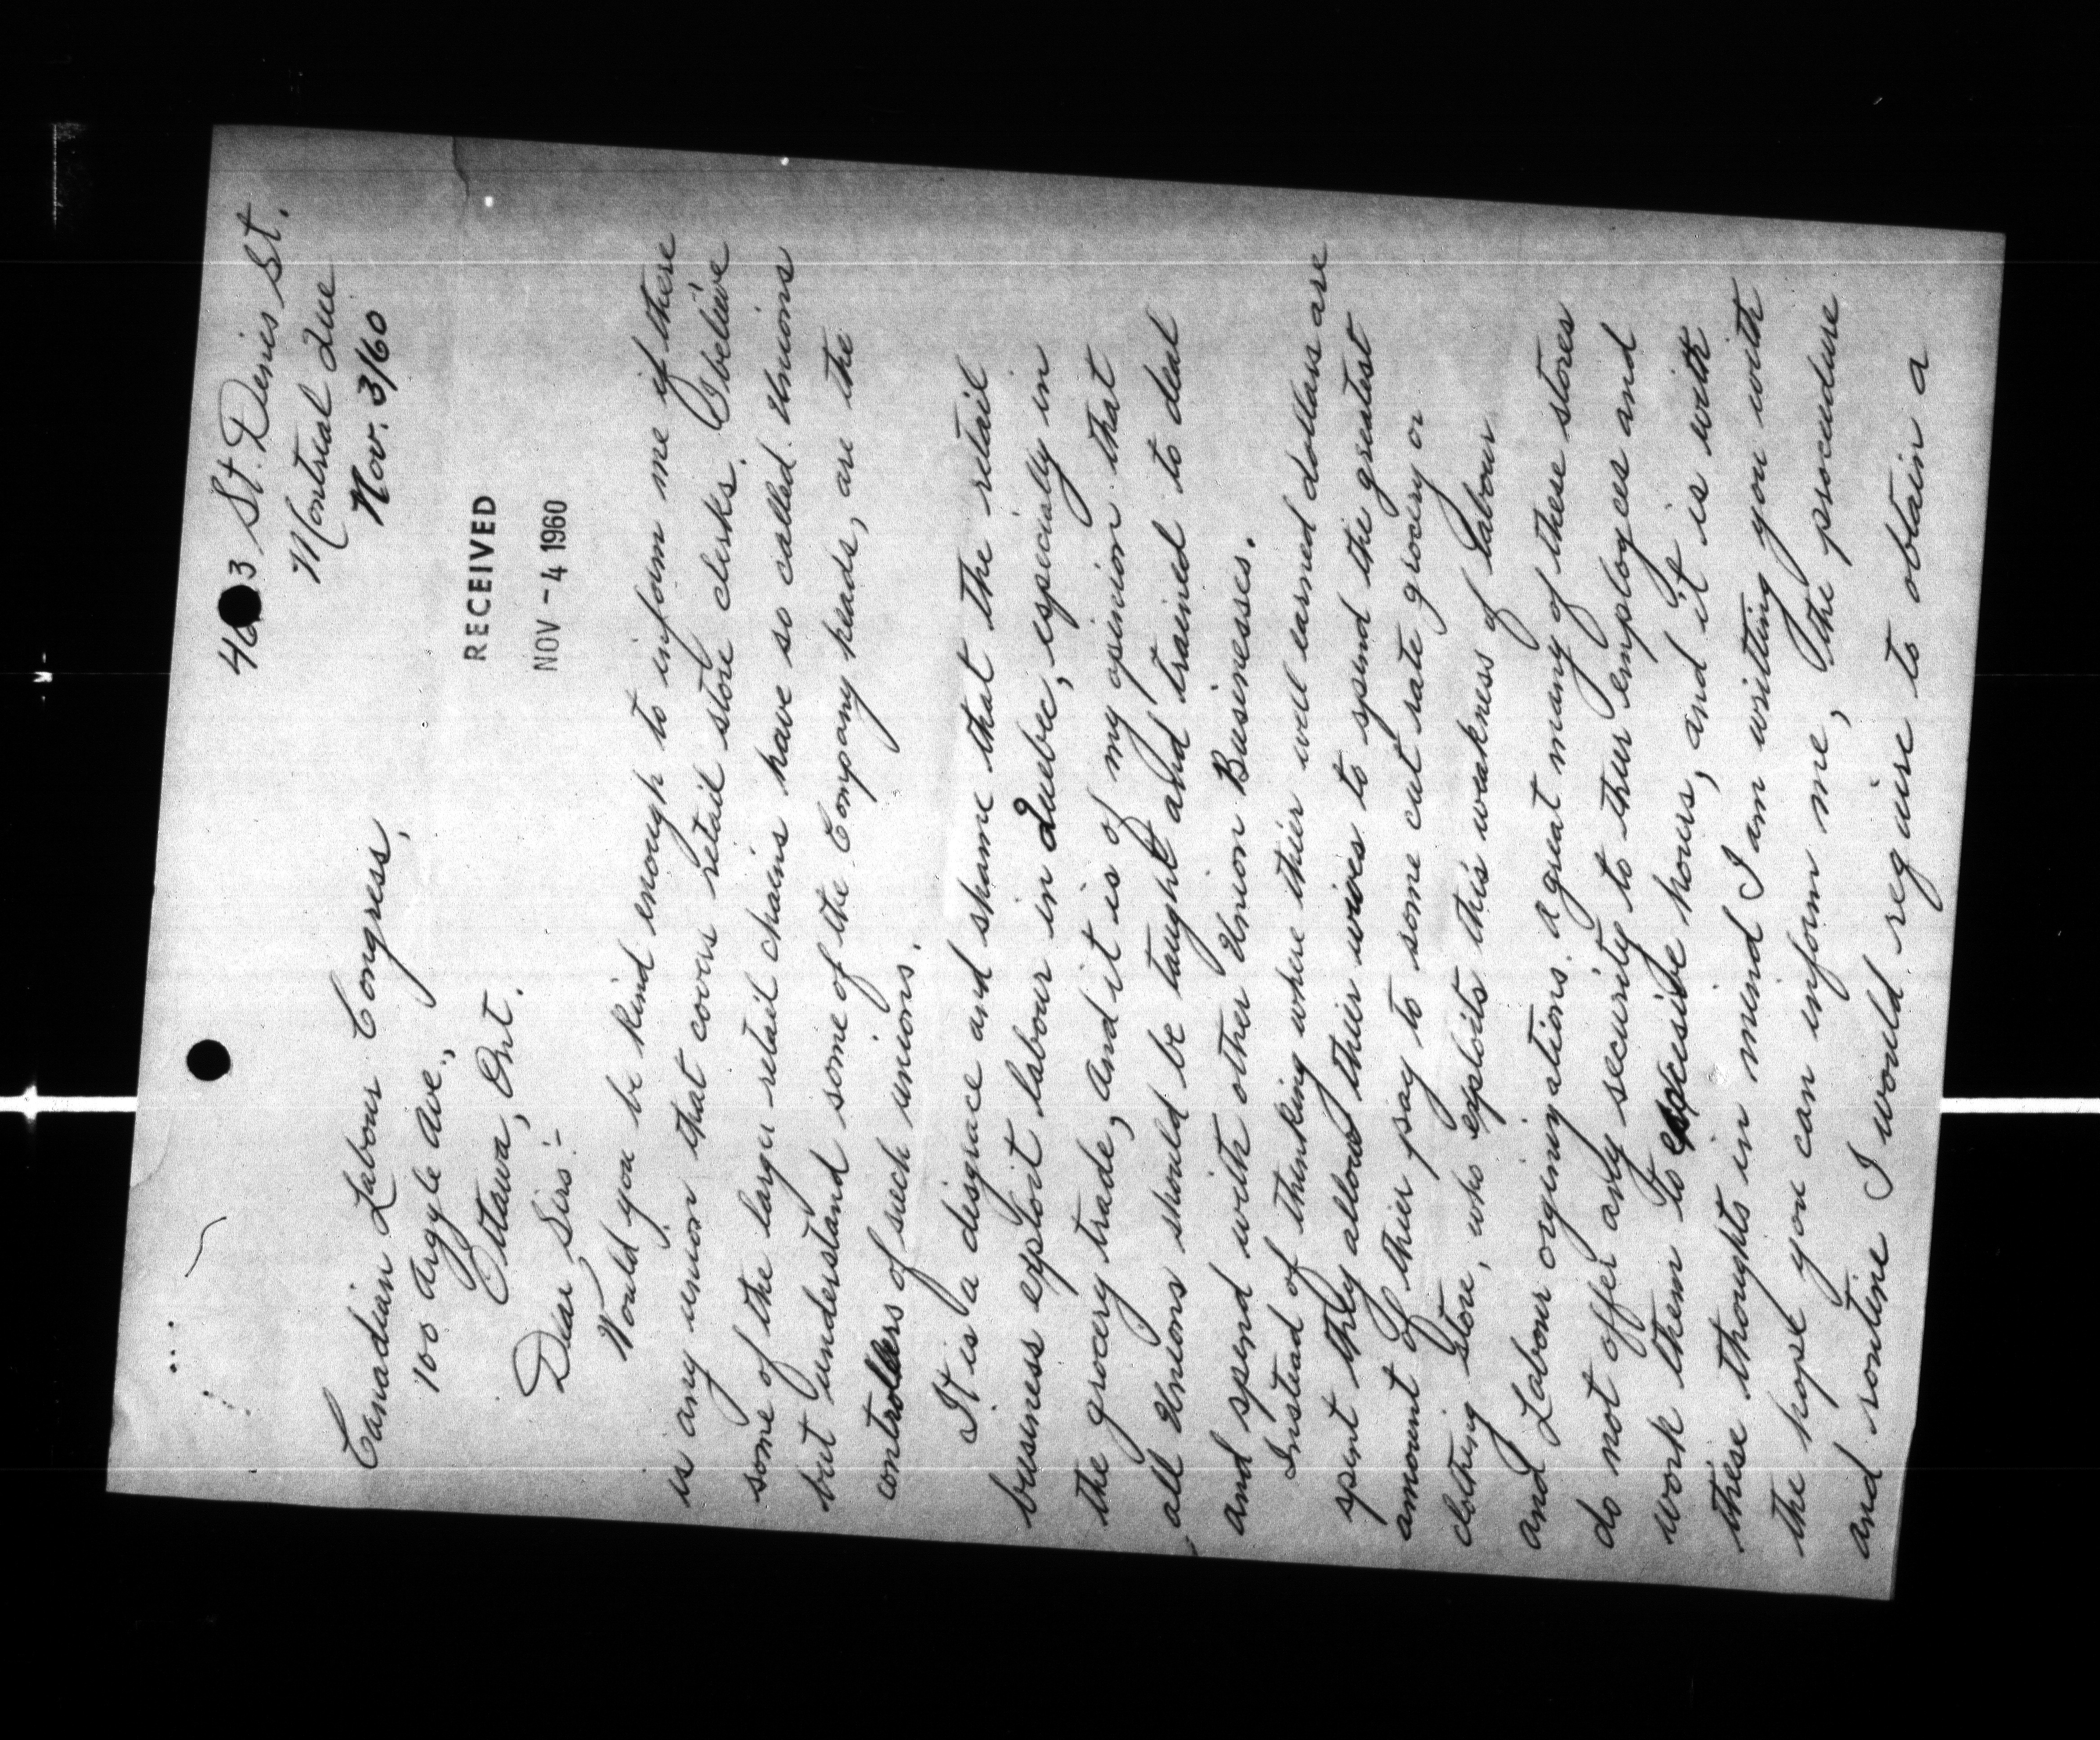 3 St. Denis St.
Montreal Que
Nov. 3/60
RECEIVED
NOV - 4 1960
Canadian Labour Congress,
100 Argyle Ave.,
Ottawa, Ont.
Dear Sirs:-
Would you be kind enough to inform me if there
is any union that covers retail store clerks. I believe
some of the larger retail chains have so called unions
but understand some of the Company heads, are the
controllers of such unions.
It is a disgrace and shame that the retail
business exploit labour in Quebec, especially in
the grocery trade, and it is of my opinion that
all unions should be taught and trained to deal
and spend with other Union Businesses.
Instead of thinking where thier well earned dollars are
spent they allow thier wives to spend the greatest
amount of thier pay to some cut rate grocery or
clothing store, who exploits this weakness of Labour
and Labour orginizations. A great many of these stores
do not offer any security to thier employees and
work them to hours, and it is with
these thoughts in mind I am writing you with
the hope you can inform me, the proceedure
and routine I would require to obtain a